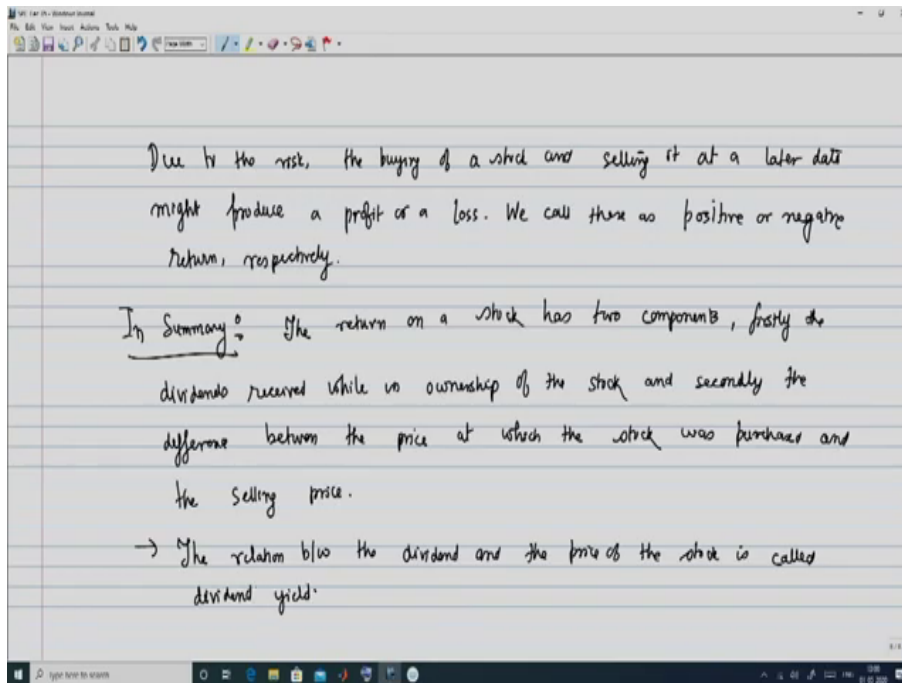 File Edit View Insert Actions Tools Help
Page Width
Due to the risk, the buying of a stock and selling it at a later date
might produce a profit or a loss. We call these as positive or negative
return, respectively.
In Summary: The return on a stock has two components, firstly the
dividends received while in ownership of the stock and secondly the
difference between the price at which the stock was purchased and
the selling price.
→ The relation b/w the dividend and the price of the stock is called
dividend yield.
Type here to search